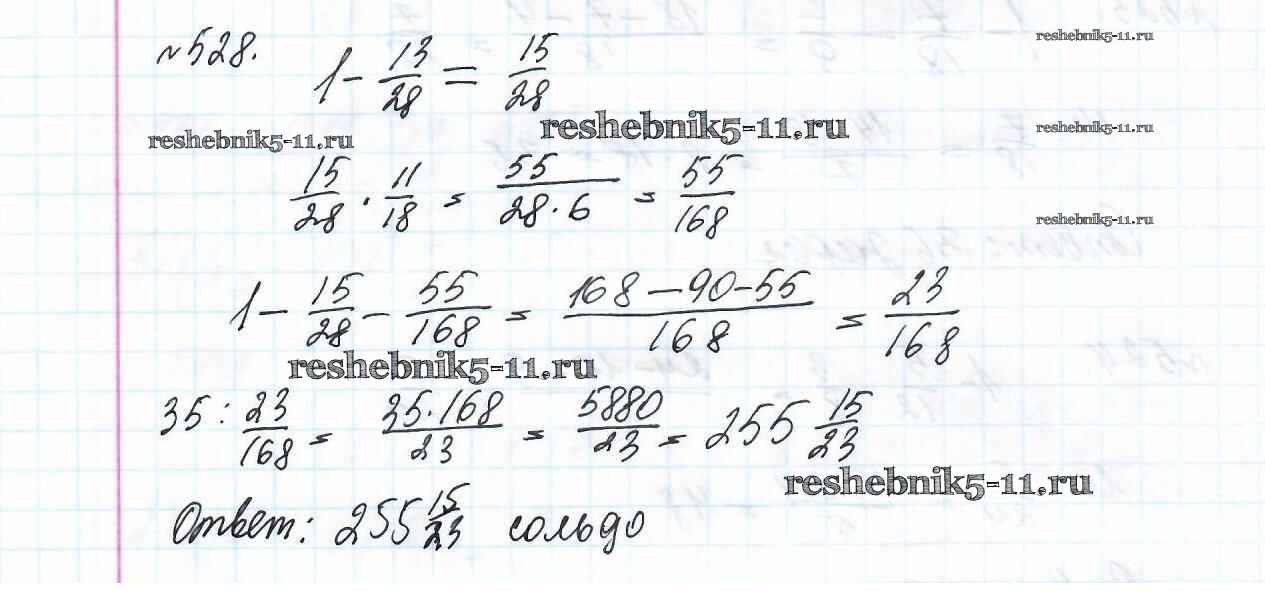 №528.
1 - 13/28 = 15/28
reshebnik5-11.ru
reshebnik5-11.ru
reshebnik5-11.ru
reshebnik5-11.ru
15/28 · 11/18 = 55/28·6 = 55/168
reshebnik5-11.ru
1 - 15/28 - 55/168 = 168-90-55/168 = 23/168
reshebnik5-11.ru
35 : 23/168 = 35·168/23 = 5880/23 = 255 15/23
reshebnik5-11.ru
Ответ: 255 15/23 сольдо